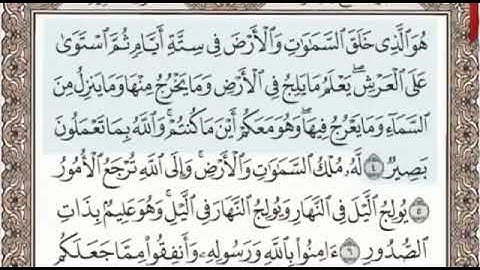 هُوَ ٱلَّذِى خَلَقَ ٱلسَّمَٰوَٰتِ وَٱلْأَرْضَ فِى سِتَّةِ أَيَّامٍ ثُمَّ ٱسْتَوَىٰ
عَلَى ٱلْعَرْشِ ۚ يَعْلَمُ مَا يَلِجُ فِى ٱلْأَرْضِ وَمَا يَخْرُجُ مِنْهَا وَمَا يَنزِلُ مِنَ
ٱلسَّمَآءِ وَمَا يَعْرُجُ فِيهَا ۖ وَهُوَ مَعَكُمْ أَيْنَ مَا كُنتُمْ ۚ وَٱللَّهُ بِمَا تَعْمَلُونَ
بَصِيرٌ ٤ لَّهُۥ مُلْكُ ٱلسَّمَٰوَٰتِ وَٱلْأَرْضِ ۚ وَإِلَى ٱللَّهِ تُرْجَعُ ٱلْأُمُورُ
٥ يُولِجُ ٱلَّيْلَ فِى ٱلنَّهَارِ وَيُولِجُ ٱلنَّهَارَ فِى ٱلَّيْلِ ۚ وَهُوَ عَلِيمٌۢ بِذَاتِ
ٱلصُّدُورِ ٦ ءَامِنُوا۟ بِٱللَّهِ وَرَسُولِهِۦ وَأَنفِقُوا۟ مِمَّا جَعَلَكُم